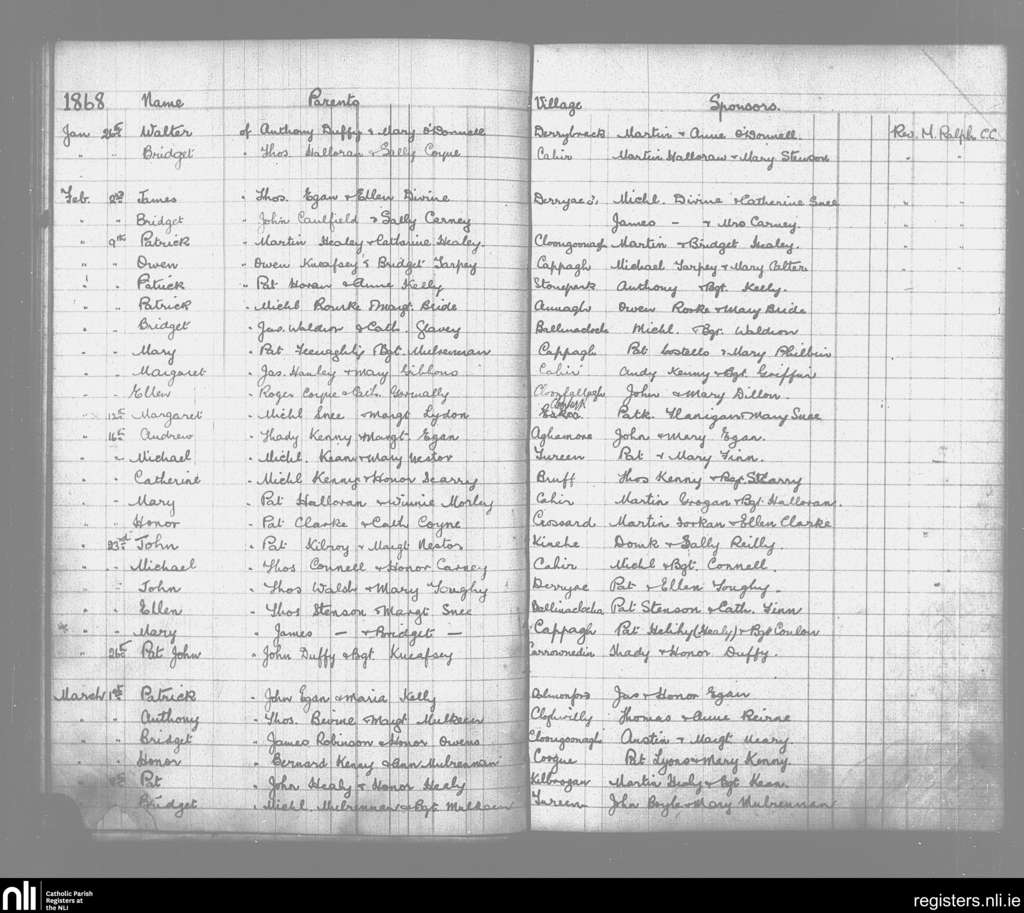 1868 Name Parents Village Sponsors.
Jan 26th Walter of Anthony Duffy & Mary O'Donnell Derrybrock Martin & Anne O'Donnell. Rev. M. Ralph C.C.
" " Bridget " Thos. Halloran & Sally Coyne Cahir Martin Halloran & Mary Stenson " "
Feb. 2nd James " Thos. Egan & Ellen Divine Michl. Divine & Catherine Snee " "
" " Bridget " John Caulfield & Sally Carney James — & Mrs Carney. " "
" 9th Patrick " Martin Healey & Catharine Healey. Cloongoonagh Martin & Bridget Healey. " "
" " Owen " Owen Kneafsey & Bridget Tarpey Cappagh Michael Tarpey & Mary " "
" " Patrick " Pat Horan & Anne Kelly Stonepark Anthony & Bgt. Kelly.
" " Patrick " Michl Rourke & Margt. Bride Annagh Owen Roske & Mary Bride
" " Bridget " Jas. Waldron & Cath. Slavey Ballinadocha Michl. & Bgt. Waldron
" " Mary " Pat & Bgt. Mulrennan Cappagh Pat Costello & Mary Philbin
" " Margaret " Jas. Hanley & Mary Gibbons Cahir Andy Kenny & Bgt. Griffin
" " Ellen " Roger Coyne & Cath. John & Mary Dillon.
" 12th Margaret " Michl Snee & Margt Lydon Esker Patk. Flanigan & Mary Snee
" 16th Andrew " Thady Kenny & Margt Egan Aghamore John & Mary Egan.
" " Michael " Michl. Kean & Mary Nestor Tureen Pat & Mary Finn.
" " Catherine " Michl Kenny & Honor Scarry Bruff Thos Kenny & Bgt. Scarry
" " Mary " Pat Halloran & Winnie Morley Cahir Martin Grogan & Bgt. Halloran.
" " Honor " Pat Clarke & Cath Coyne Crossard Martin Jorkan & Ellen Clarke
" 23rd John " Pat Kilroy & Margt Nestor Kinche Domk & Sally Reilly.
" " Michael " Thos Connell & Honor Carney Cahir Michl & Bgt. Connell.
" " John " Thos Walsh & Mary Toughy Derryae Pat & Ellen Toughy.
" " Ellen " Thos Stenson & Margt Snee Ballinadocha Pat Stenson & Cath. Finn
" " Mary " James — & Bridget — Cappagh Pat Helihy (Healy) & Bgt Conlon
" 26th Pat John " John Duffy & Bgt Kneafsey Carrownedin Thady & Honor Duffy.
March 1st Patrick " John Egan & Maria Kelly Jas & Honor Egan
" " Anthony " Thos. Beirne & Margt Mulkeen Thomas & Anne Reirne
" " Bridget " James Robinson & Honor Owens Cloongoonagh Austin & Margt Neary
" " Honor " Bernard Kenny & Ann Mulrennan Coogue Pat Lyons & Mary Kenny.
" Pat " John Healy & Honor Healy Kilbrogan Martin Healy & Bgt Kean.
Bridget " Michl. Mulrennan & Bgt Mulkeen Tureen John Boyle & Mary Mulrennan
nli Catholic Parish
Registers at
the NLI
registers.nli.ie